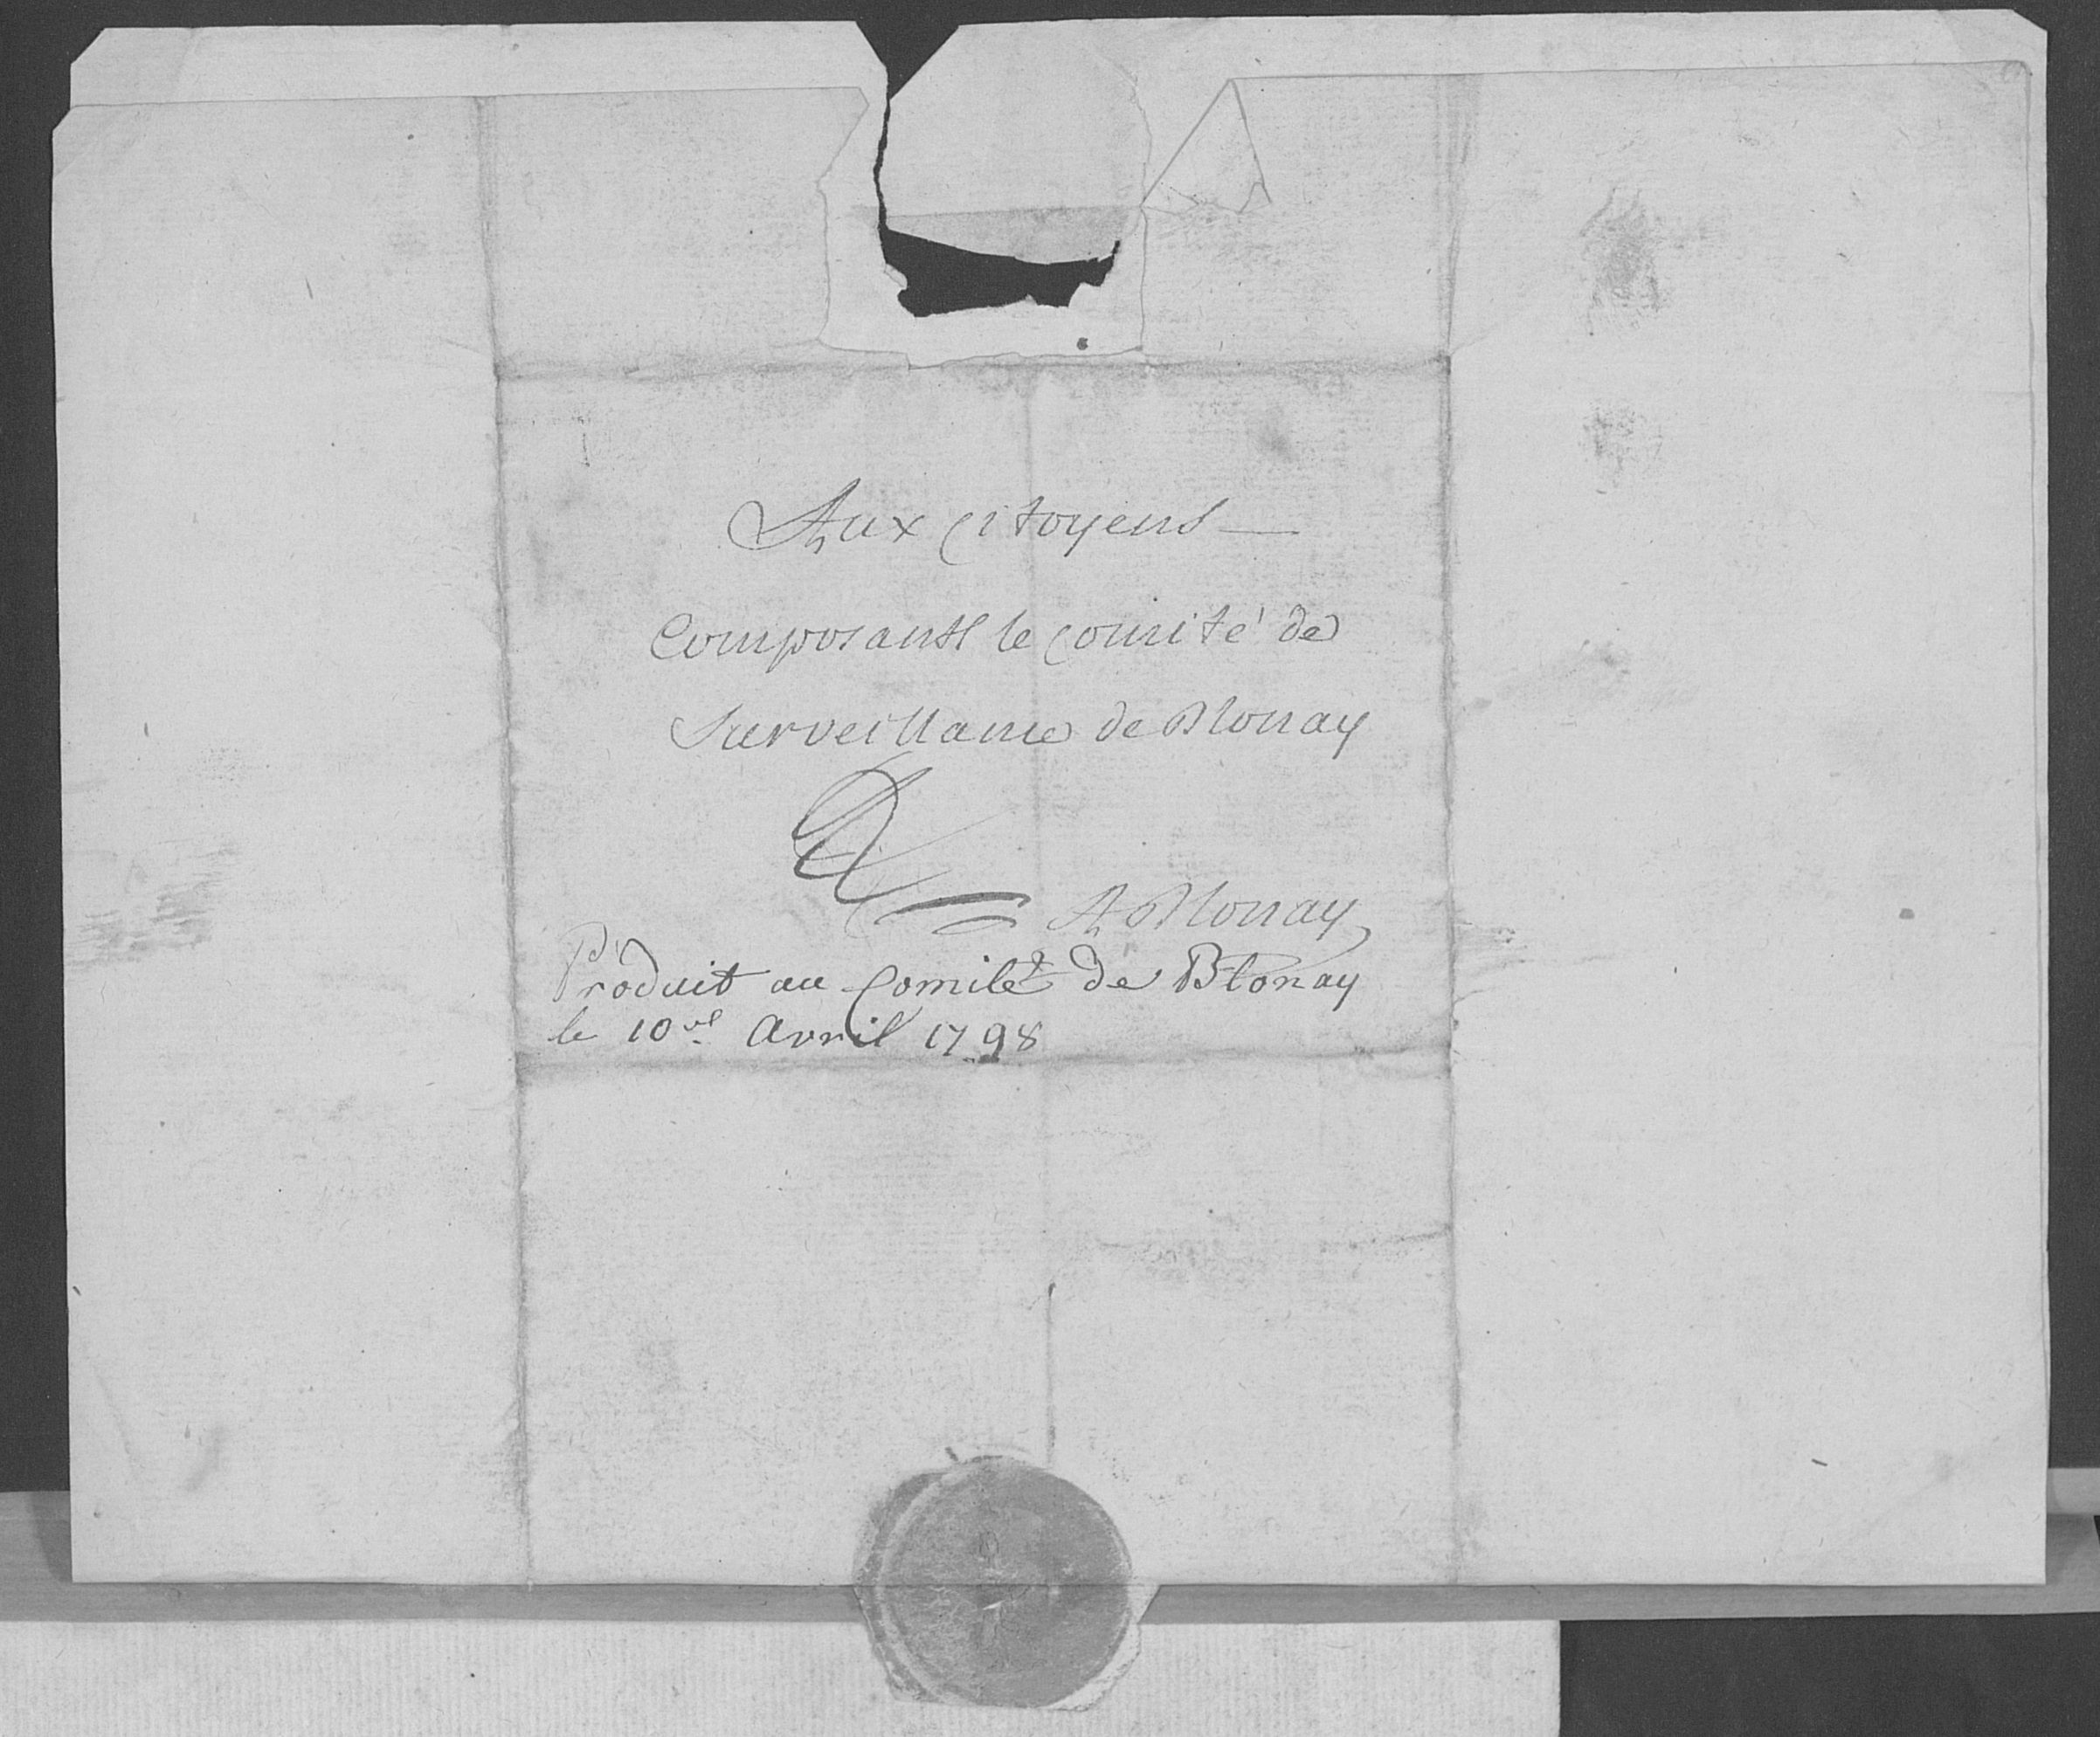 Aux Citoyens
Composants le Comité de
Surveillance de Blonay
A Blonay
Produit au Comité de Blonay
le 10e Avril 1798